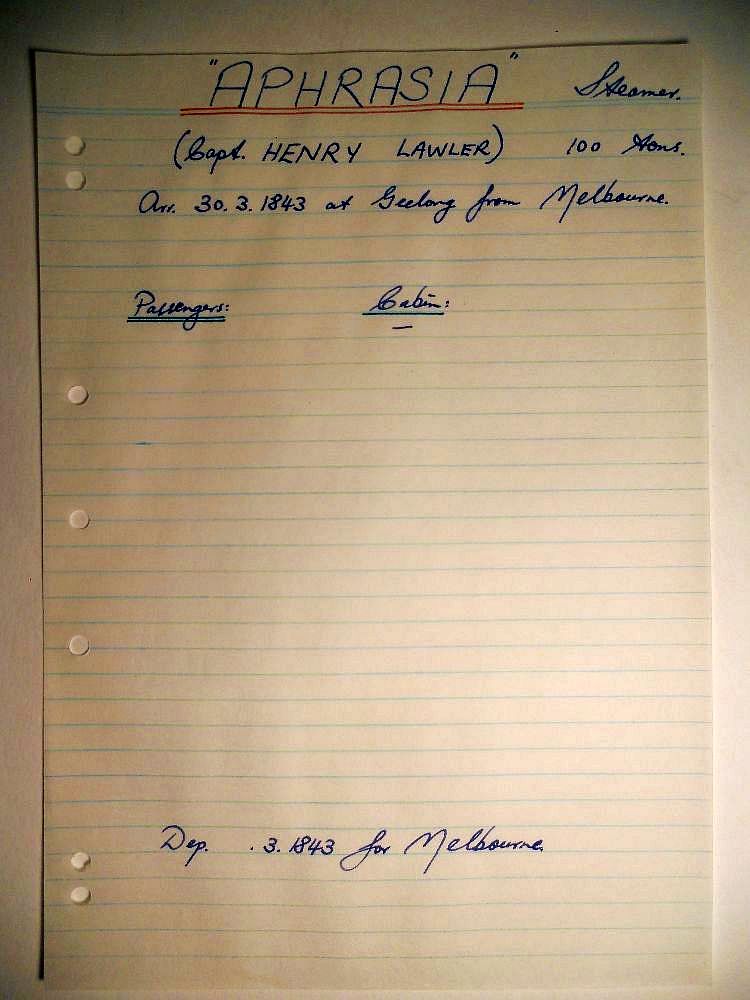 "APHRASIA" Steamer.
(Capt. HENRY LAWLER) 100 tons.
Arr. 30.3.1843 at Geelong from Melbourne.
Passengers: Cabin:
—
Dep. .3.1843 for Melbourne